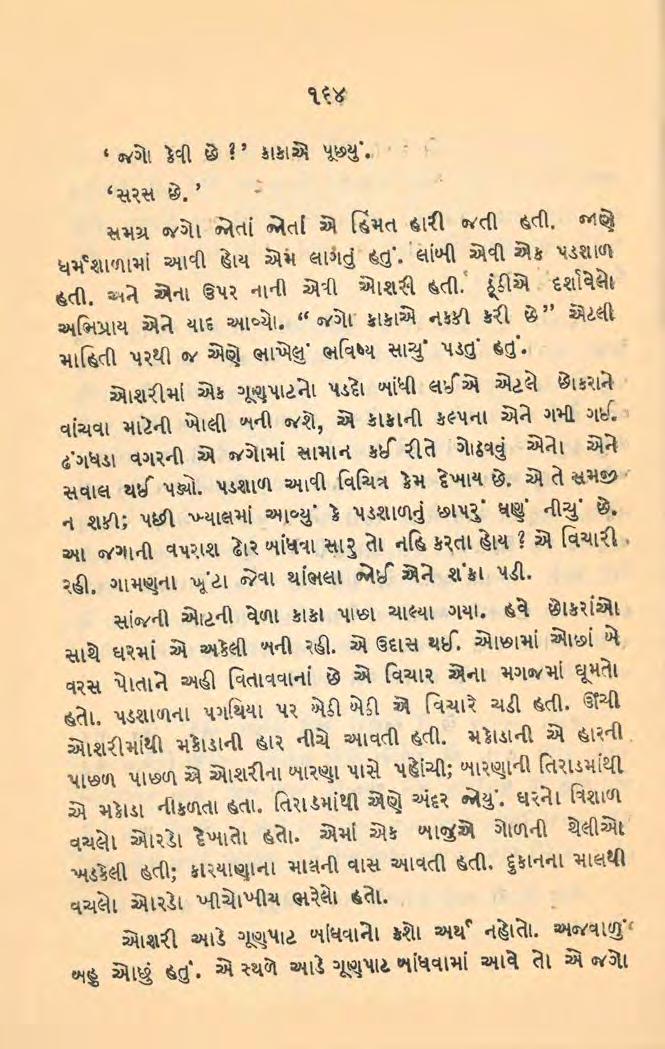 ૧૬૪
‘ જગો કેવી છે ?’ કાકાએ પૂછ્યું.
‘સરસ છે.’
સમગ્ર જગો જોતાં જોતાં એ હિંમત હારી જતી હતી. જાણે
ધર્મશાળામાં આવી હોય એમ લાગતું હતું. લાંબી એવી એક પડશાળ
હતી. અને એના ઉપર નાની એવી ઓશરી હતી. ઠૂંઠીએ દર્શાવેલો
અભિપ્રાય એને યાદ આવ્યો. “ જગો કાકાએ નક્કી કરી છે” એટલી
માહિતી પરથી જ એણે ભાખેલું ભવિષ્ય સાચું પડતું હતું.
ઓશરીમાં એક ગૂણપાટનો પડદો બાંધી લઈએ એટલે છોકરાને
વાંચવા માટેની ખોલી બની જશે, એ કાકાની કલ્પના એને ગમી ગઈ.
ઢંગધડા વગરની એ જગોમાં સામાન કઈ રીતે ગોઠવવું એનો એને
સવાલ થઈ પડ્યો. પડશાળ આવી વિચિત્ર કેમ દેખાય છે. એ તે સમજી
ન શકી; પછી ખ્યાલમાં આવ્યું કે પડશાળનું છાપરું ઘણું નીચું છે.
આ જગાની વપરાશ ઢોર બાંધવા સારુ તો નહિ કરતા હોય ? એ વિચારી
રહી. ગામણના ખૂંટા જેવા થાંભલા જોઈ એને શંકા પડી.
સાંજની ઓટની વેળા કાકા પાછા ચાલ્યા ગયા. હવે છોકરાંઓ
સાથે ઘરમાં એ અકેલી બની રહી. એ ઉદાસ થઈ. ઓછામાં ઓછાં બે
વરસ પોતાને અહી વિતાવવાનાં છે એ વિચાર એના મગજમાં ઘૂમતો
હતો. પડશાળના પગથિયા પર બેઠી બેઠી એ વિચારે ચડી હતી. ઊંચી
ઓશરીમાંથી મકોડાની હાર નીચે આવતી હતી. મકોડાની એ હારની
પાછળ પાછળ એ ઓશરીના બારણા પાસે પહોંચી; બારણાની તિરાડમાંથી
એ મકોડા નીકળતા હતા. તિરાડમાંથી એણે અંદર જોયું. ઘરનો વિશાળ
વચલો ઓરડો દેખાતો હતો. એમાં એક બાજુએ ગોળની થેલીઓ
ખડકેલી હતી; કારયાણાના માલની વાસ આવતી હતી. દુકાનના માલથી
વચલો ઓરડો ખીચોખીચ ભરેલો હતો.
ઓશરી આડે ગૂણપાટ બાંધવાનો કશો અર્થ નહોતો. અજવાળું
બહુ ઓછું હતું. એ સ્થળે આડે ગૂણપાટ બાંધવામાં આવે તો એ જગો